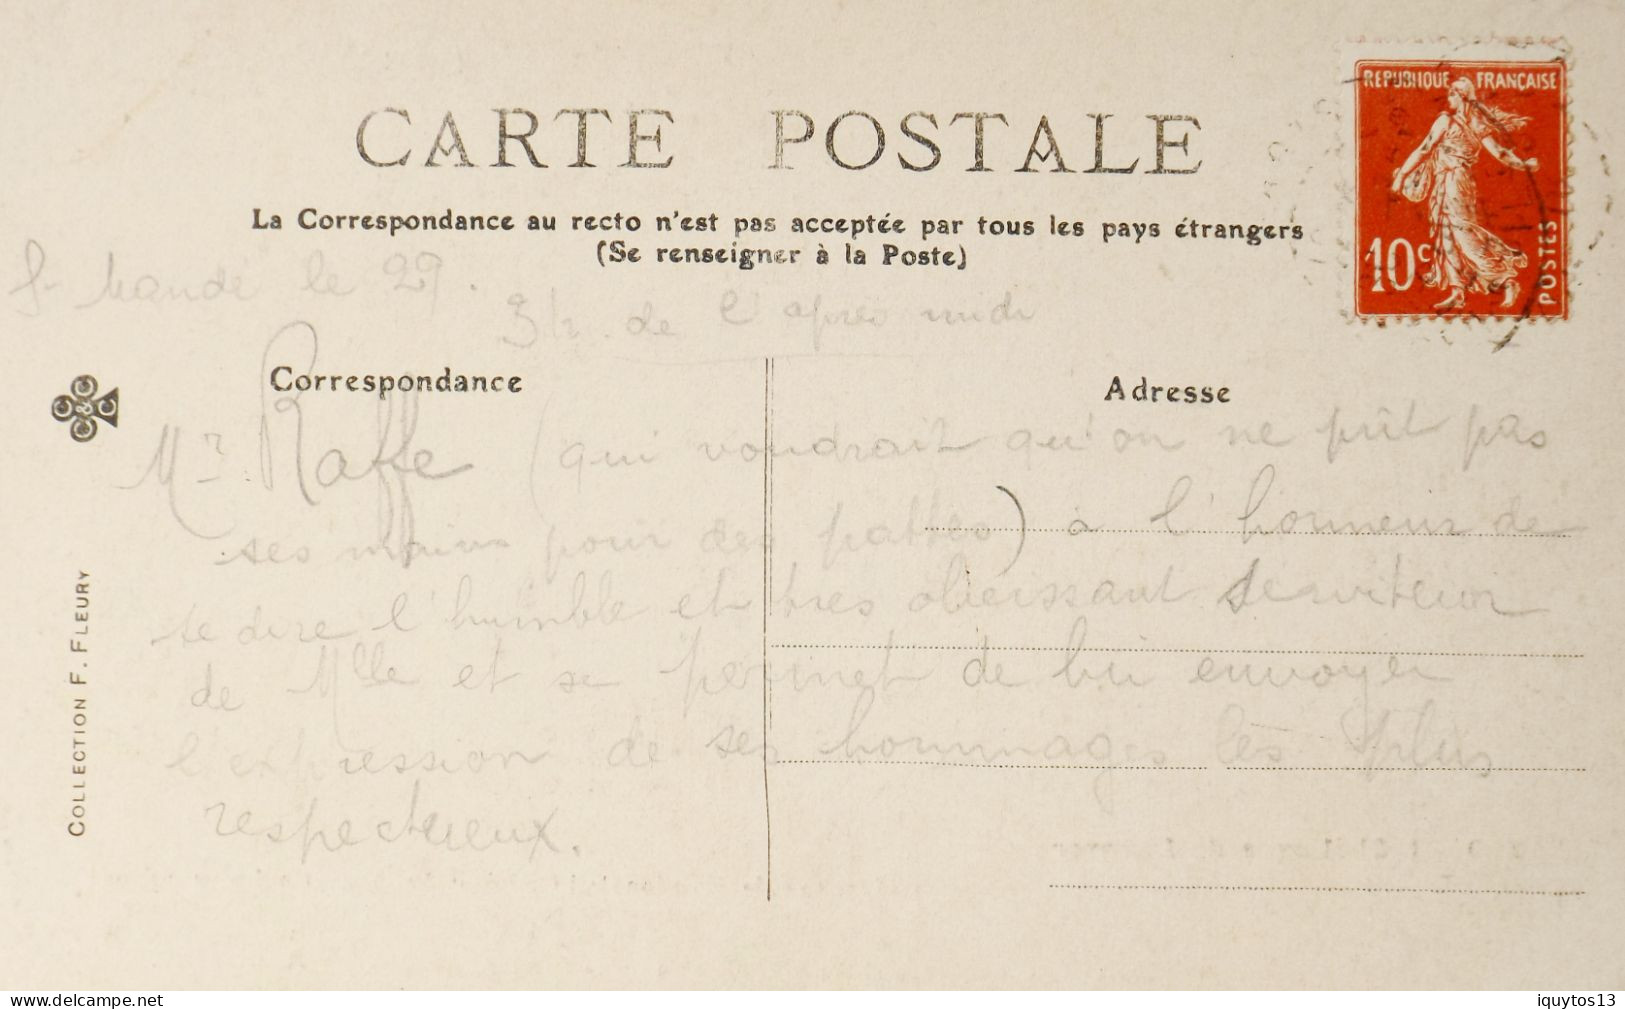 CARTE POSTALE
La Correspondance au recto n'est pas acceptée par tous les pays étrangers
(Se renseigner à la Poste)
REPUBLIQUE FRANÇAISE
10c
POSTES
St Mandé le 29.
3h. de l'après midi
Correspondance
Adresse
COLLECTION F. FLEURY
Mr Raffe (qui voudrait qu'on ne prît pas
ses mains pour des pattes) a l'honneur de
se dire l'humble et très obeissant serviteur
de Mlle et se permet de lui envoyer
l'expression de ses hommages les plus
respectueux.
www.delcampe.net
iquytos13